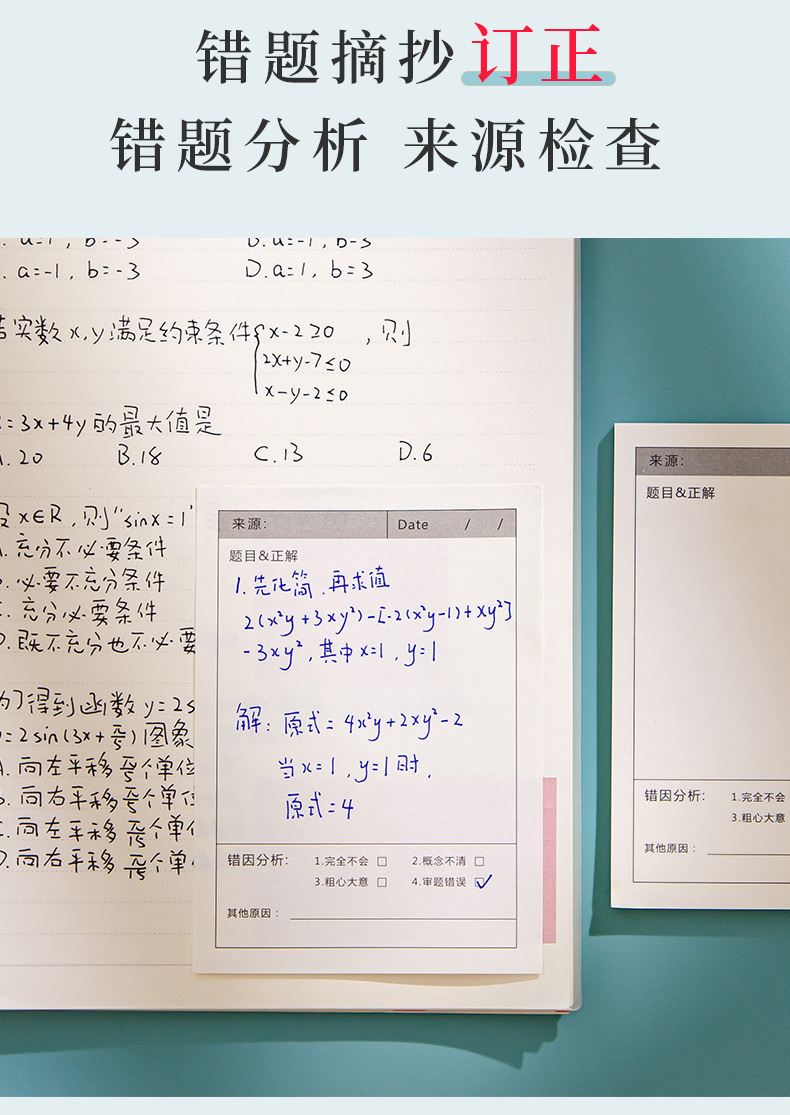 错题摘抄订正
错题分析 来源检查
a=-1, b=-3
D.a=1, b=3
实数x,y满足约束条件{x-2≥0
2x+y-7≤0
x-y-2≤0
,则
=3x+4y的最大值是
.20 B.18 C.13 D.6
x∈R,则"sinx=1"
.充分不必要条件
.必要不充分条件
.充分必要条件
.既不充分也不必要
为了得到函数y=2s
=2sin(3x+π/5)图象
A.向左平移π/5个单位
.向右平移π/5个单位
.向左平移π/15个单位
.向右平移π/15个单
来源: Date / /
题目&正解
1.先化简,再求值
2(x²y+3xy²)-[-2(x²y-1)+xy²]
-3xy²,其中x=1,y=1
解:原式=4x²y+2xy²-2
当x=1,y=1时,
原式=4
错因分析: 1.完全不会 □ 2.概念不清 □
3.粗心大意 □ 4.审题错误 ☑
其他原因:
来源:
题目&正解
错因分析: 1.完全不会
3.粗心大意
其他原因: